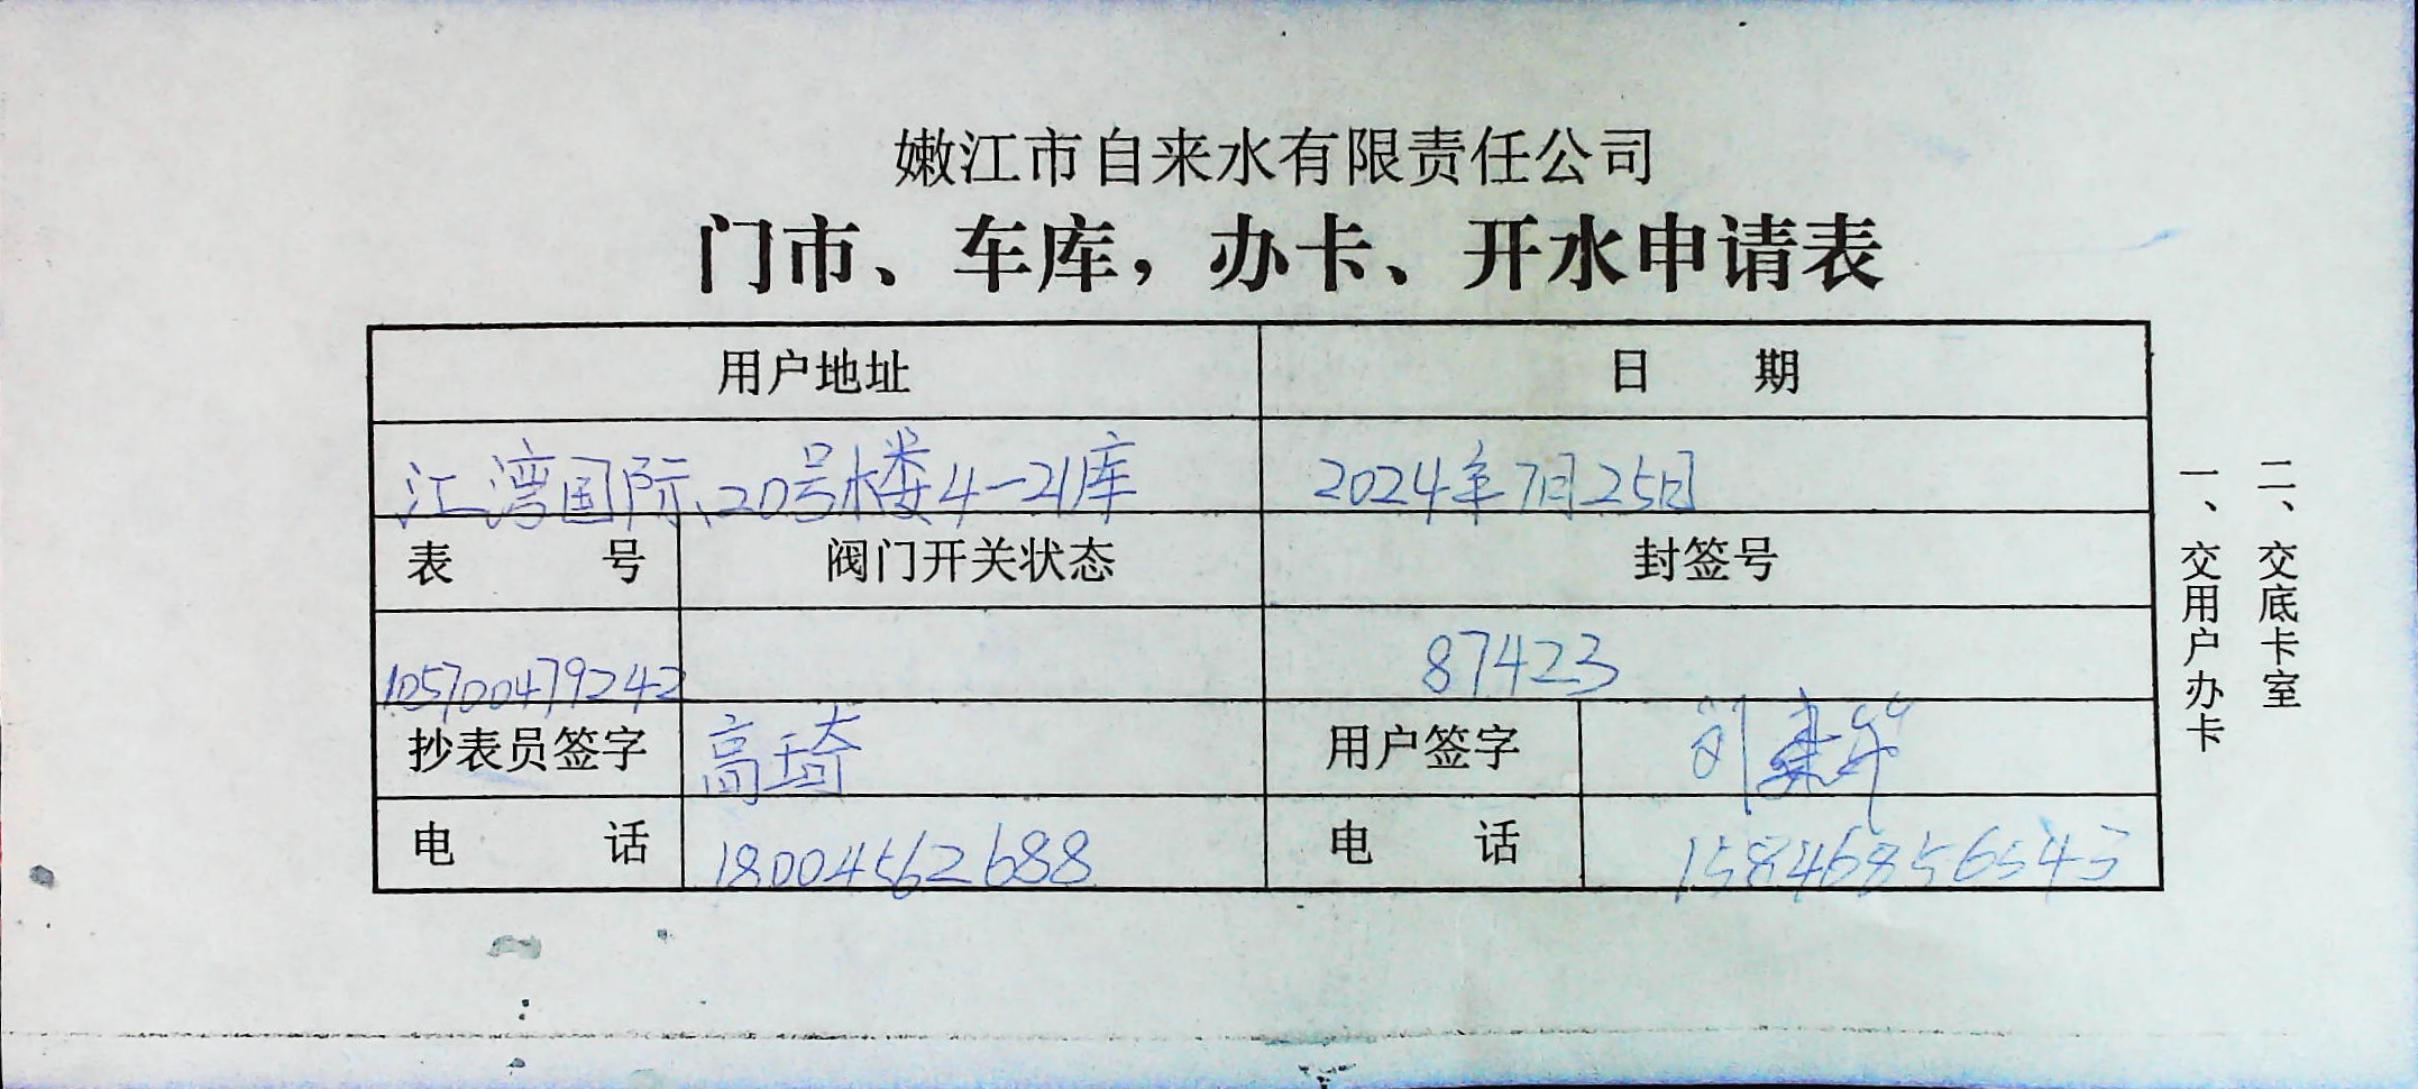 嫩江市自来水有限责任公司
门市、车库，办卡、开水申请表
用户地址 日 期
江湾国际、20号楼4-21库 2024年7月25日
表 号 阀门开关状态 封签号
105700479242 87423
抄表员签字 高琦 用户签字 刘
电 话 18004562688 电 话 15846856543
一、交用户办卡
二、交底卡室